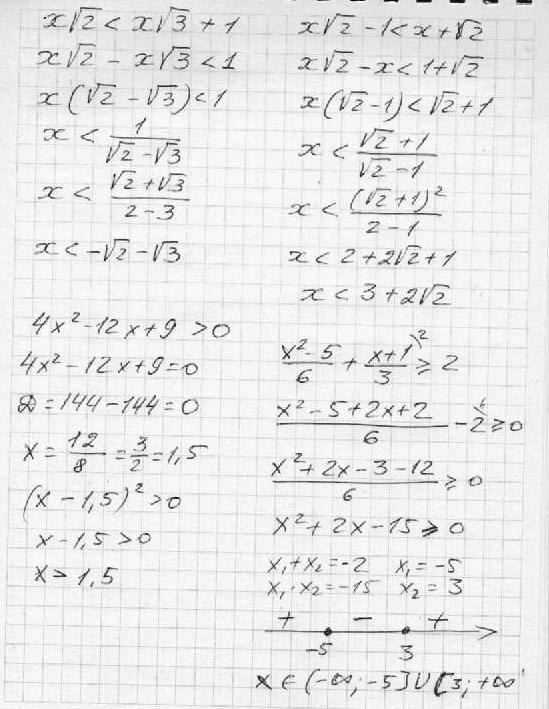 x√2 < x√3 + 1
x√2 − x√3 < 1
x(√2 − √3) < 1
x < 1/(√2 − √3)
x < (√2 + √3)/(2 − 3)
x < −√2 − √3
x√2 − 1 < x + √2
x√2 − x < 1 + √2
x(√2 − 1) < √2 + 1
x < (√2 + 1)/(√2 − 1)
x < (√2 + 1)²/(2 − 1)
x < 2 + 2√2 + 1
x < 3 + 2√2
4x² − 12x + 9 > 0
4x² − 12x + 9 = 0
D = 144 − 144 = 0
x = 12/8 = 3/2 = 1,5
(x − 1,5)² > 0
x − 1,5 > 0
x > 1,5
(x² − 5)/6 + (x + 1)/3 ^2) ≥ 2
(x² − 5 + 2x + 2)/6 − 2 ^6) ≥ 0
(x² + 2x − 3 − 12)/6 ≥ 0
x² + 2x − 15 ≥ 0
x₁ + x₂ = −2 x₁ = −5
x₁ · x₂ = −15 x₂ = 3
+ − +
−5 3
x ∈ (−∞; −5] ∪ [3; +∞